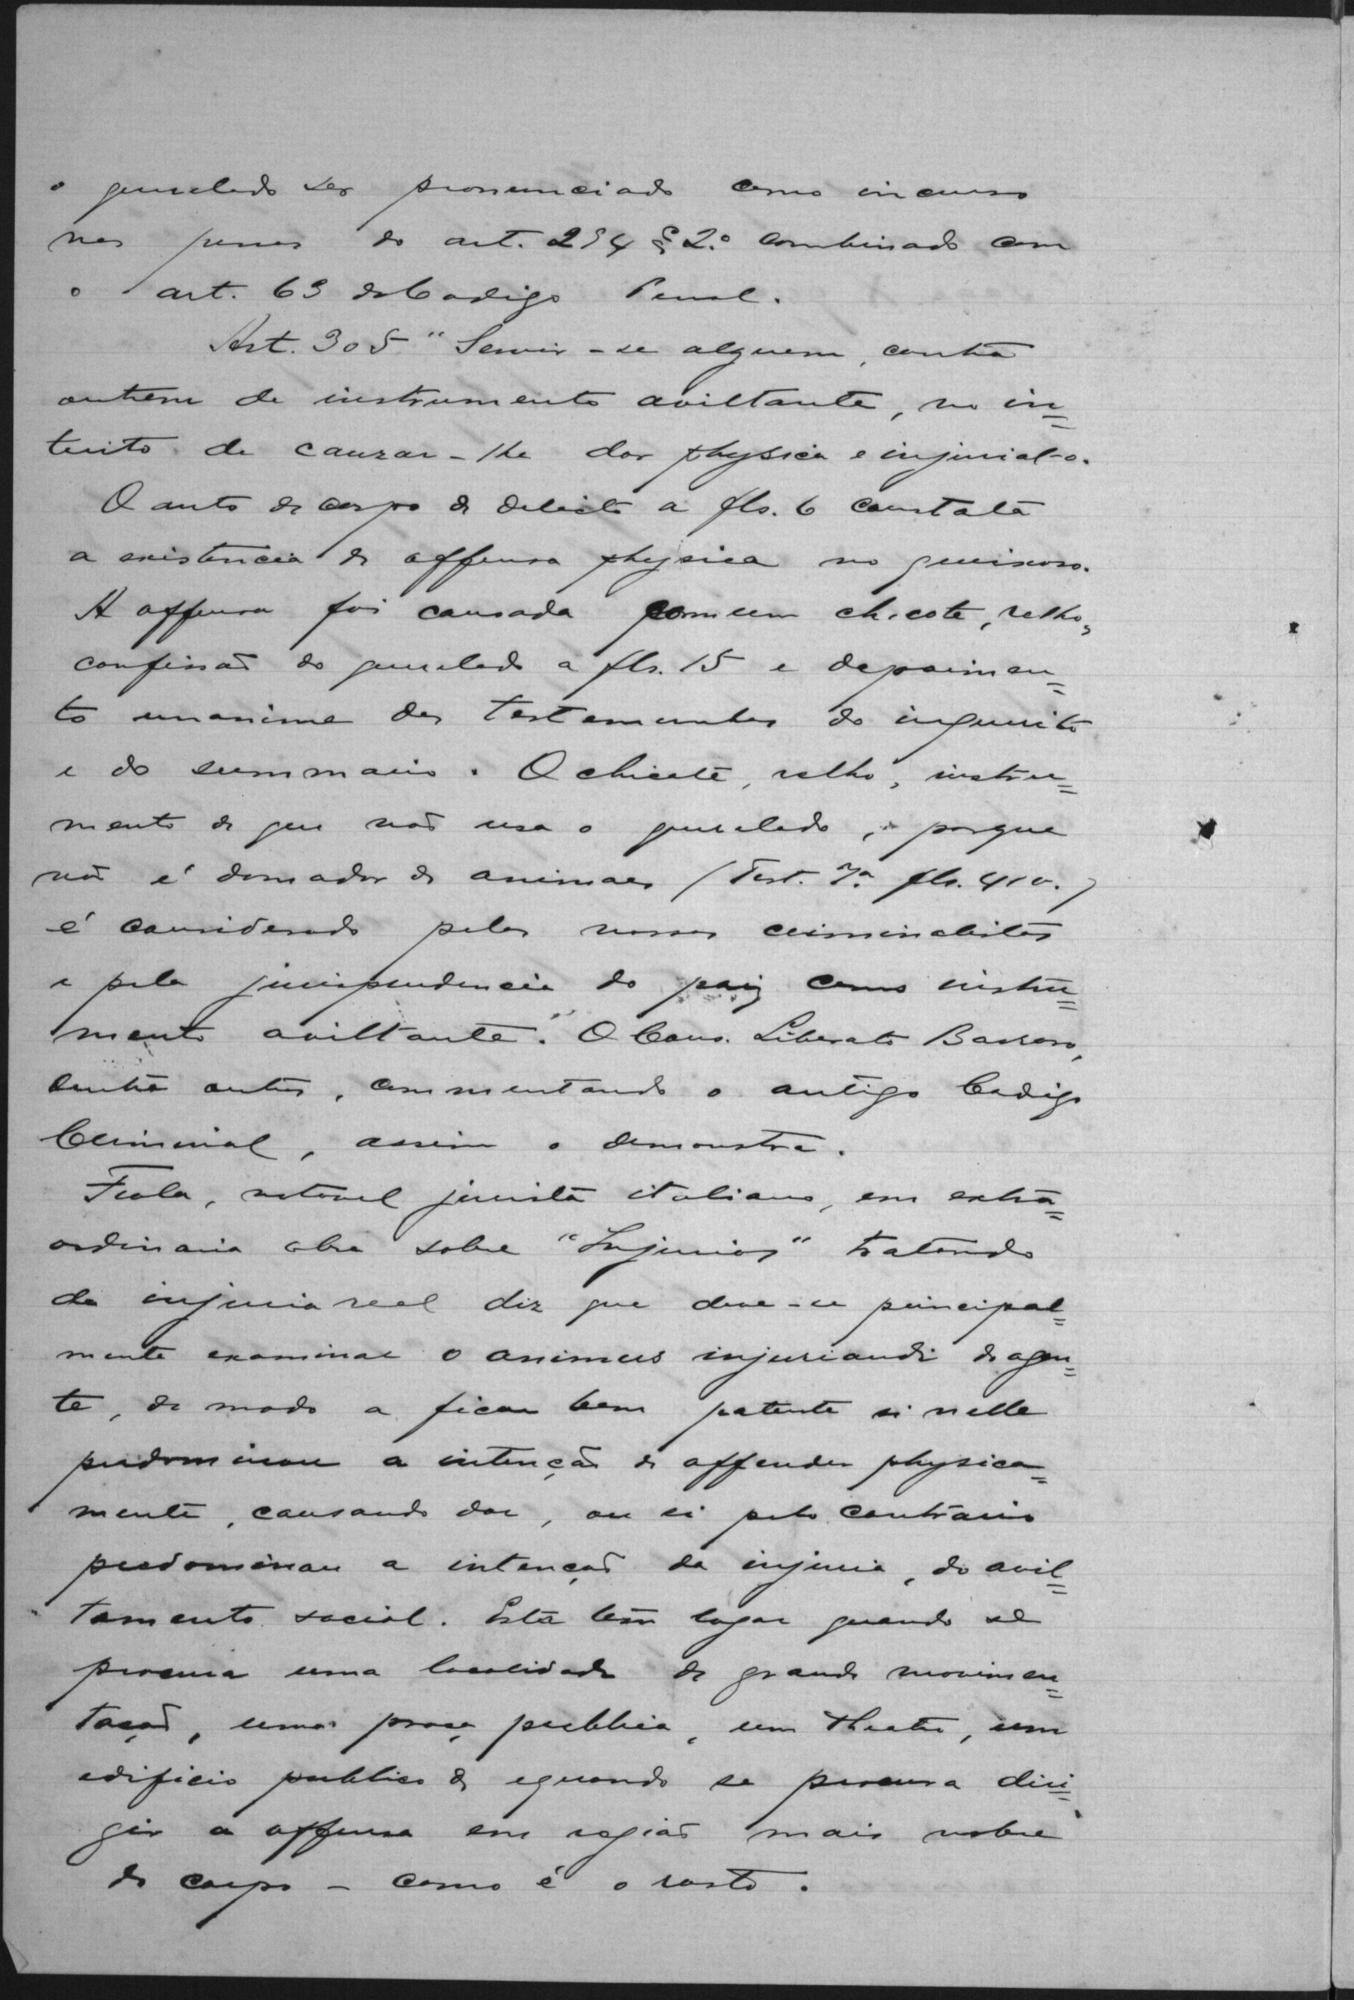 o querelado ser pronunciado como incurso
nas penas do art. 294 § 2.º combinado com
o art. 63 do Codigo Penal.
Art. 305 "Servir-se alguem, contra
outrem de instrumento aviltante, no in=
tuito de causar-lhe dor physica e injurial-o.
O auto de corpo de delicto a fls. 6 constata
a existencia de offensa physica no queixoso.
A offensa foi causada com um chicote, relho,
confissão do querelado a fls. 15 e depoimen=
to unanime das testemunhas do inquerito
e do summario. O chicote, relho, instru=
mento de que não usa o querelado, porque
não é domador de animaes (Test. 7ª fls. 41 v.)
é considerado pelos nossos criminalistas
e pela jurisprudencia do paiz como instru=
mento aviltante". O Cons. Liberato Barroso,
dentre outros, commentando o antigo Codigo
Criminal, assim o demonstra.
Frola, notavel jurista italiano, em extra=
ordinaria obra sobre "Injurias" tratando
da injuria real diz que deve-se principal=
mente examinar o animus injuriandi do agen=
te, de modo a ficar bem patente si nelle
predominou a intenção de offender physica=
mente, causando dor, ou si pelo contrario
predominou a intenção da injuria, do avil=
tamento social. Esta tem lugar quando se
procura uma localidade de grande movimen=
tação, uma praça publica, um theatro, um
edificio publico & e quando se procura diri=
gir a offensa em região mais nobre
do corpo - como é o rosto.